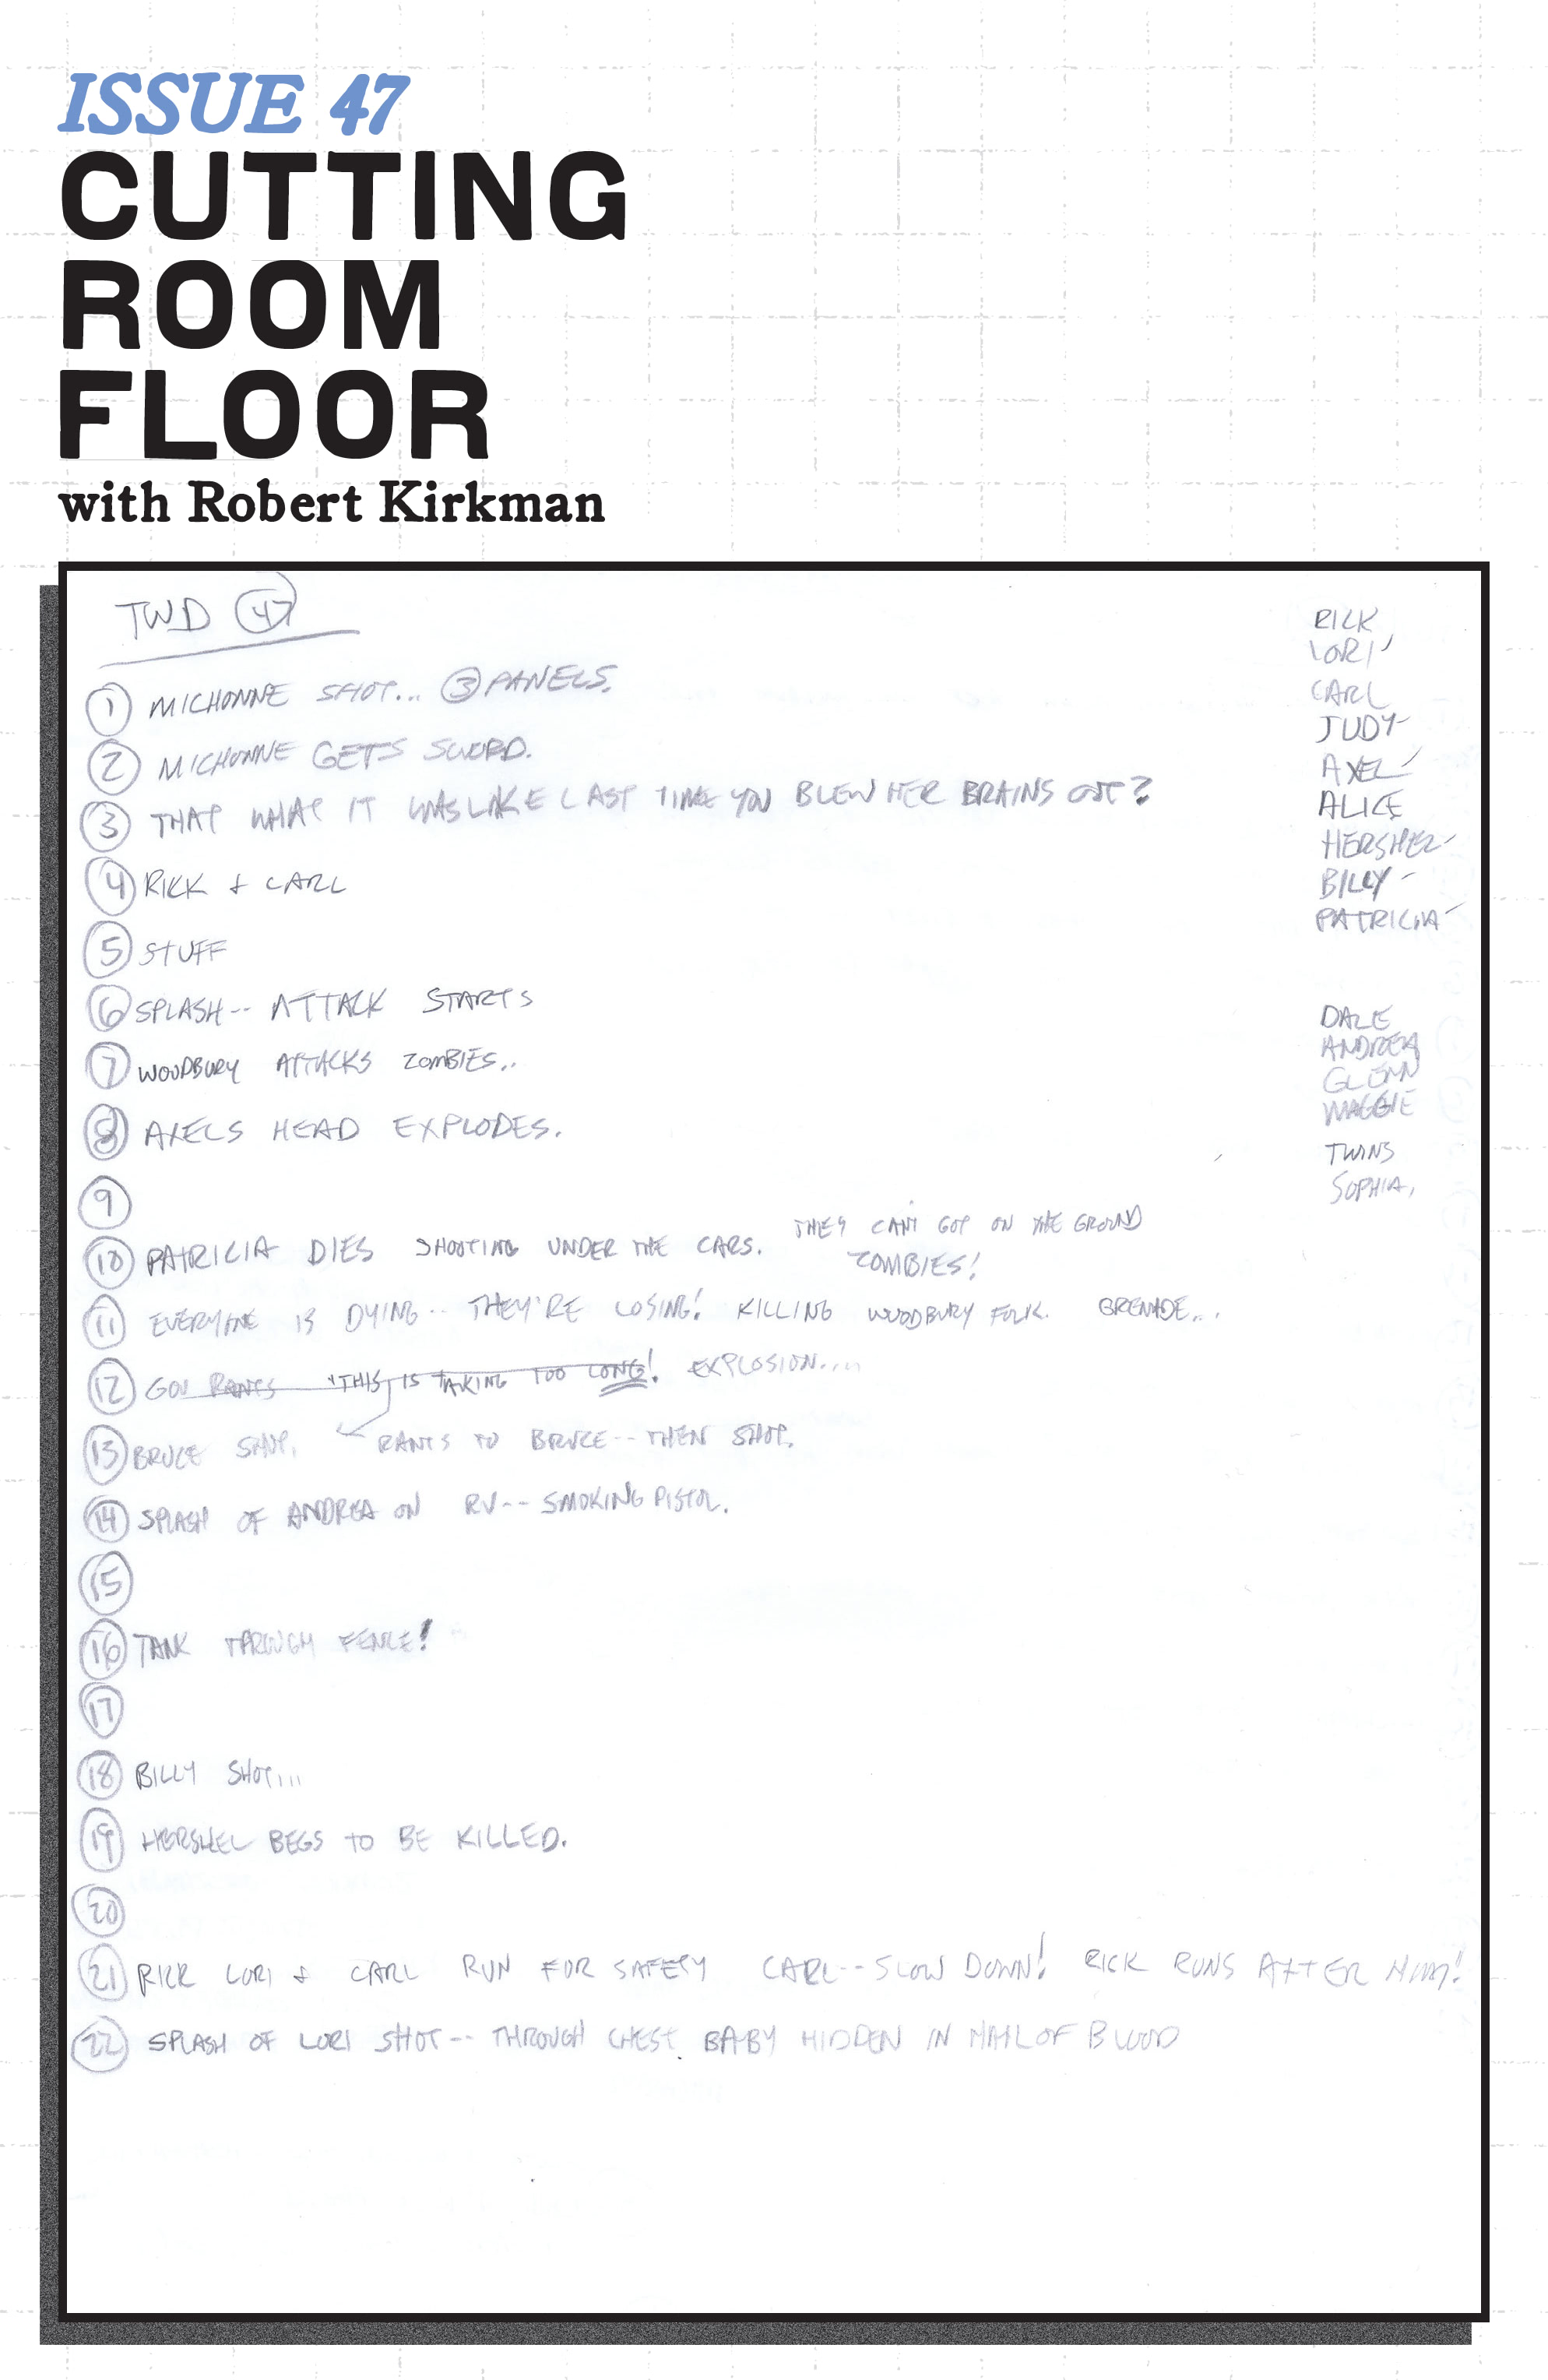 ISSUE 47
CUTTING
ROOM
FLOOR
with Robert Kirkman
TWD 47
1 MICHONNE SHOT... 3 PANELS.
2 MICHONNE GETS SWORD.
3 THAT WHAT IT WAS LIKE LAST TIME YOU BLEW HER BRAINS OUT?
4 RICK & CARL
5 STUFF
6 SPLASH-- ATTACK STARTS
7 WOODBURY ATTACKS ZOMBIES..
8 AXELS HEAD EXPLODES.
9
10 PATRICIA DIES SHOOTING UNDER THE CARS. THEY CAN'T GOT ON THE GROUND
ZOMBIES!
11 EVERYONE IS DYING-- THEY'RE LOSING! KILLING WOODBURY FOLK. GRENADE...
12 GOV RANTS "THIS IS TAKING TOO LONG! EXPLOSION....
13 BRUCE SHOT. RANTS TO BRUCE-- THEN SHOT.
14 SPLASH OF ANDREA ON RV-- SMOKING PISTOL.
15
16 TANK THROUGH FENCE!
17
18 BILLY SHOT...
19 HERSHEL BEGS TO BE KILLED.
20
21 RICK LORI & CARL RUN FOR SAFETY CARL-- SLOW DOWN! RICK RUNS AFTER HIM!
22 SPLASH OF LORI SHOT-- THROUGH CHEST BABY HIDDEN IN HAIL OF BLOOD
RICK
LORI
CARL
JUDY
AXEL
ALICE
HERSHEL
BILLY
PATRICIA
DALE
ANDREA
GLENN
MAGGIE
TWINS
SOPHIA,